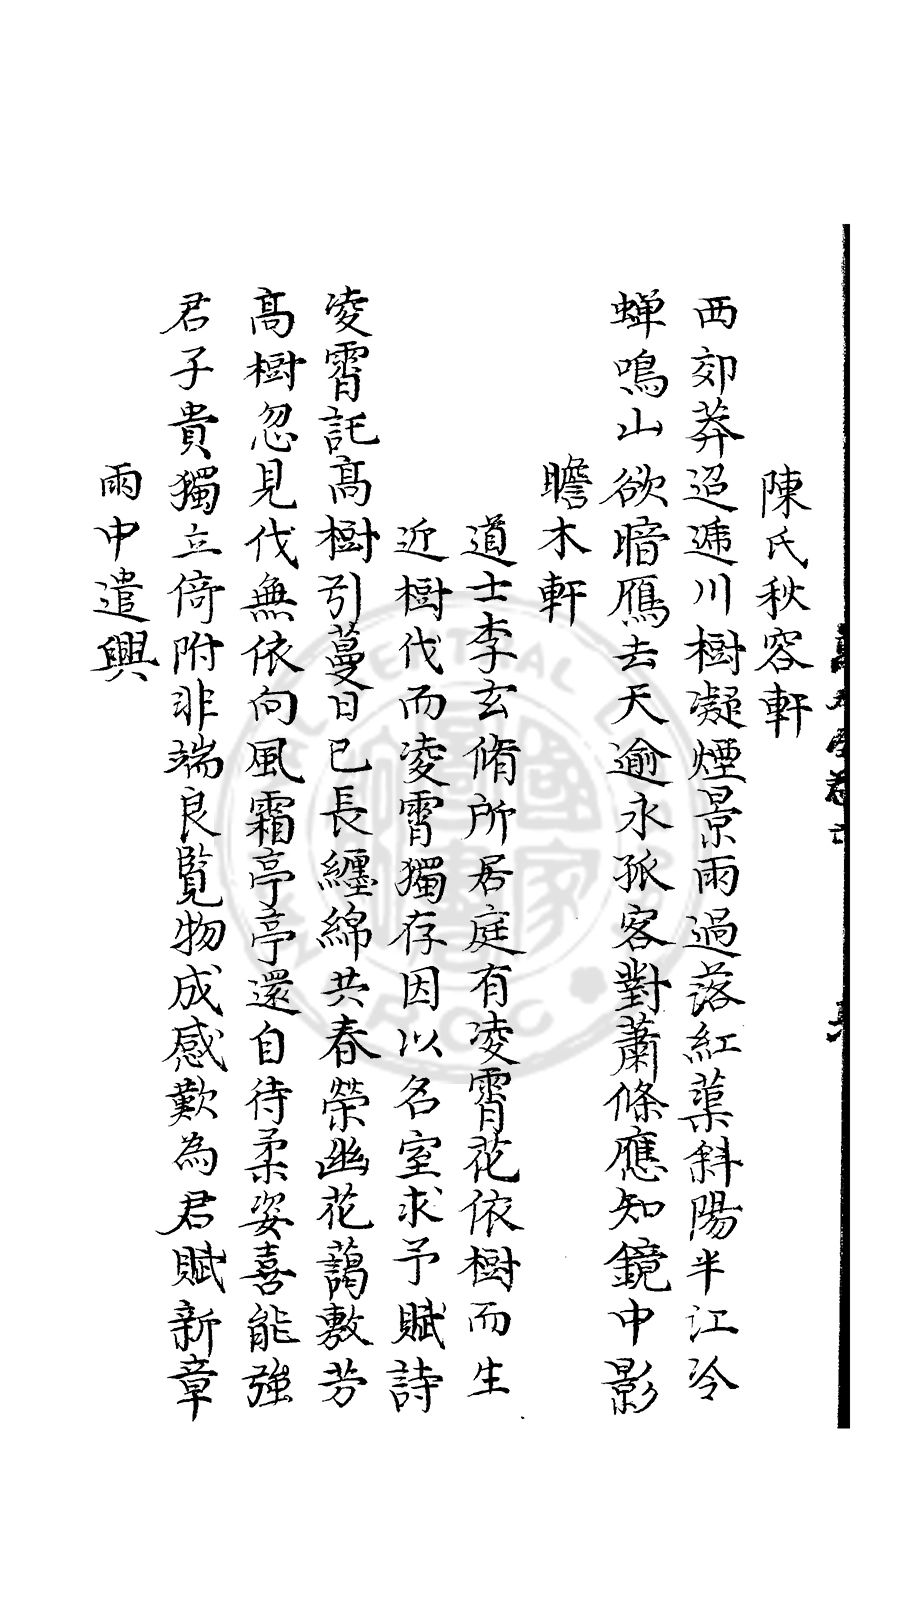 陳氏秋容軒
西郊莽迢遞川樹凝煙景雨過落紅蕖斜陽半江冷
蟬鳴山欲暗鴈去天逾永孤客對蕭條應知鏡中影
瞻木軒
道士李玄脩所居庭有凌霄花依樹而生
近樹伐而凌霄獨存因以名室求予賦詩
凌霄託高樹引蔓日已長纏綿共春榮幽花藹敷芳
高樹忽見伐無依向風霜亭亭還自待柔姿喜能強
君子貴獨立倚附非端良覧物成感歎為君賦新章
雨中遣興